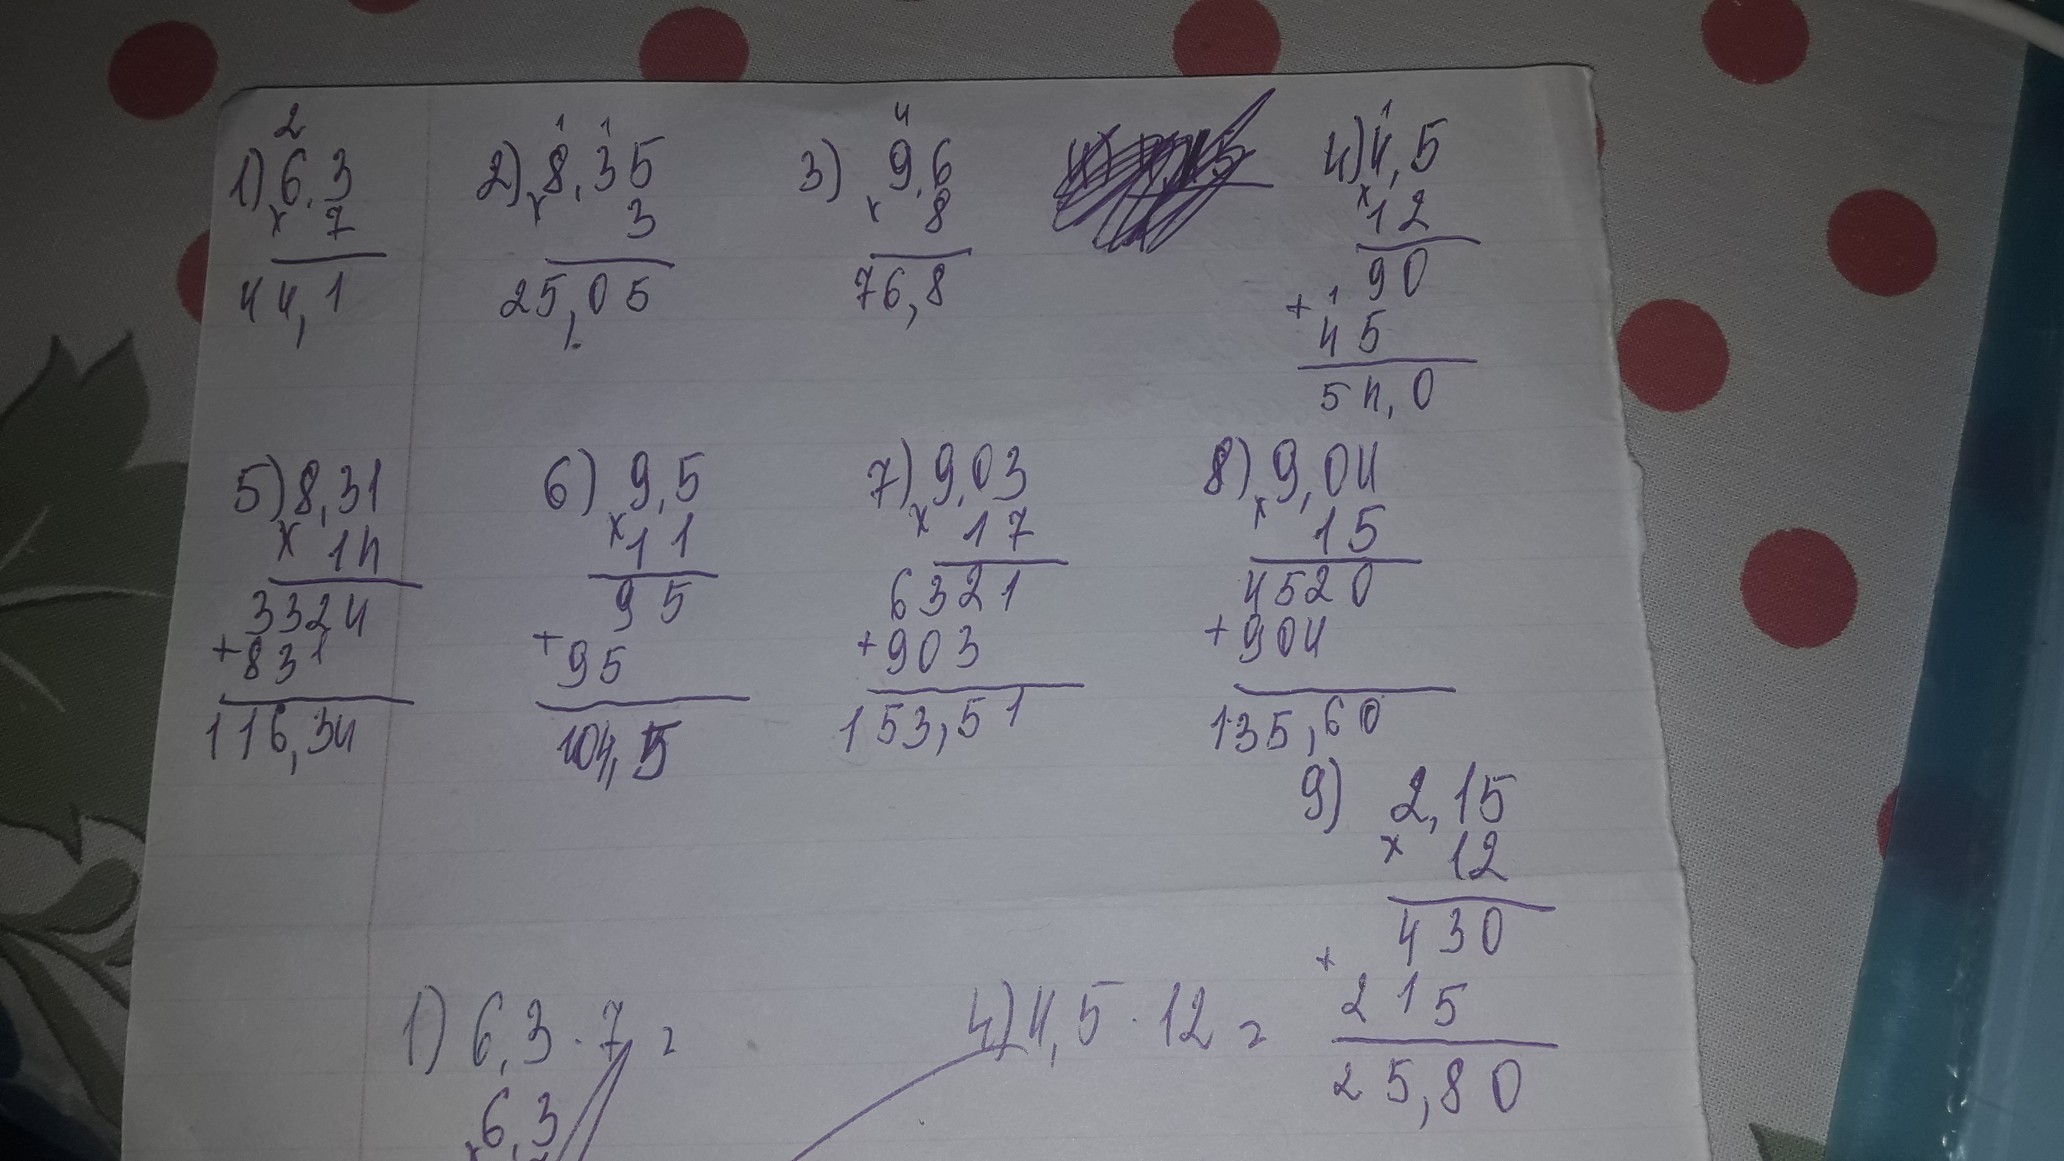 2
1) 6,3
x 7
44,1
1 1
2) 8,35
x 3
25,05
4
3) 9,6
x 8
76,8
1
4) 4,5
x 12
90
+ 1
45
54,0
5) 8,31
x 14
3324
+ 831
116,34
6) 9,5
x 11
95
+ 95
104,5
7) 9,03
x 17
6321
+ 903
153,51
8) 9,04
x 15
4520
+ 904
135,60
9) 2,15
x 12
430
+ 215
25,80
1) 6,3 · 7 =
6,3
x
4) 4,5 · 12 =